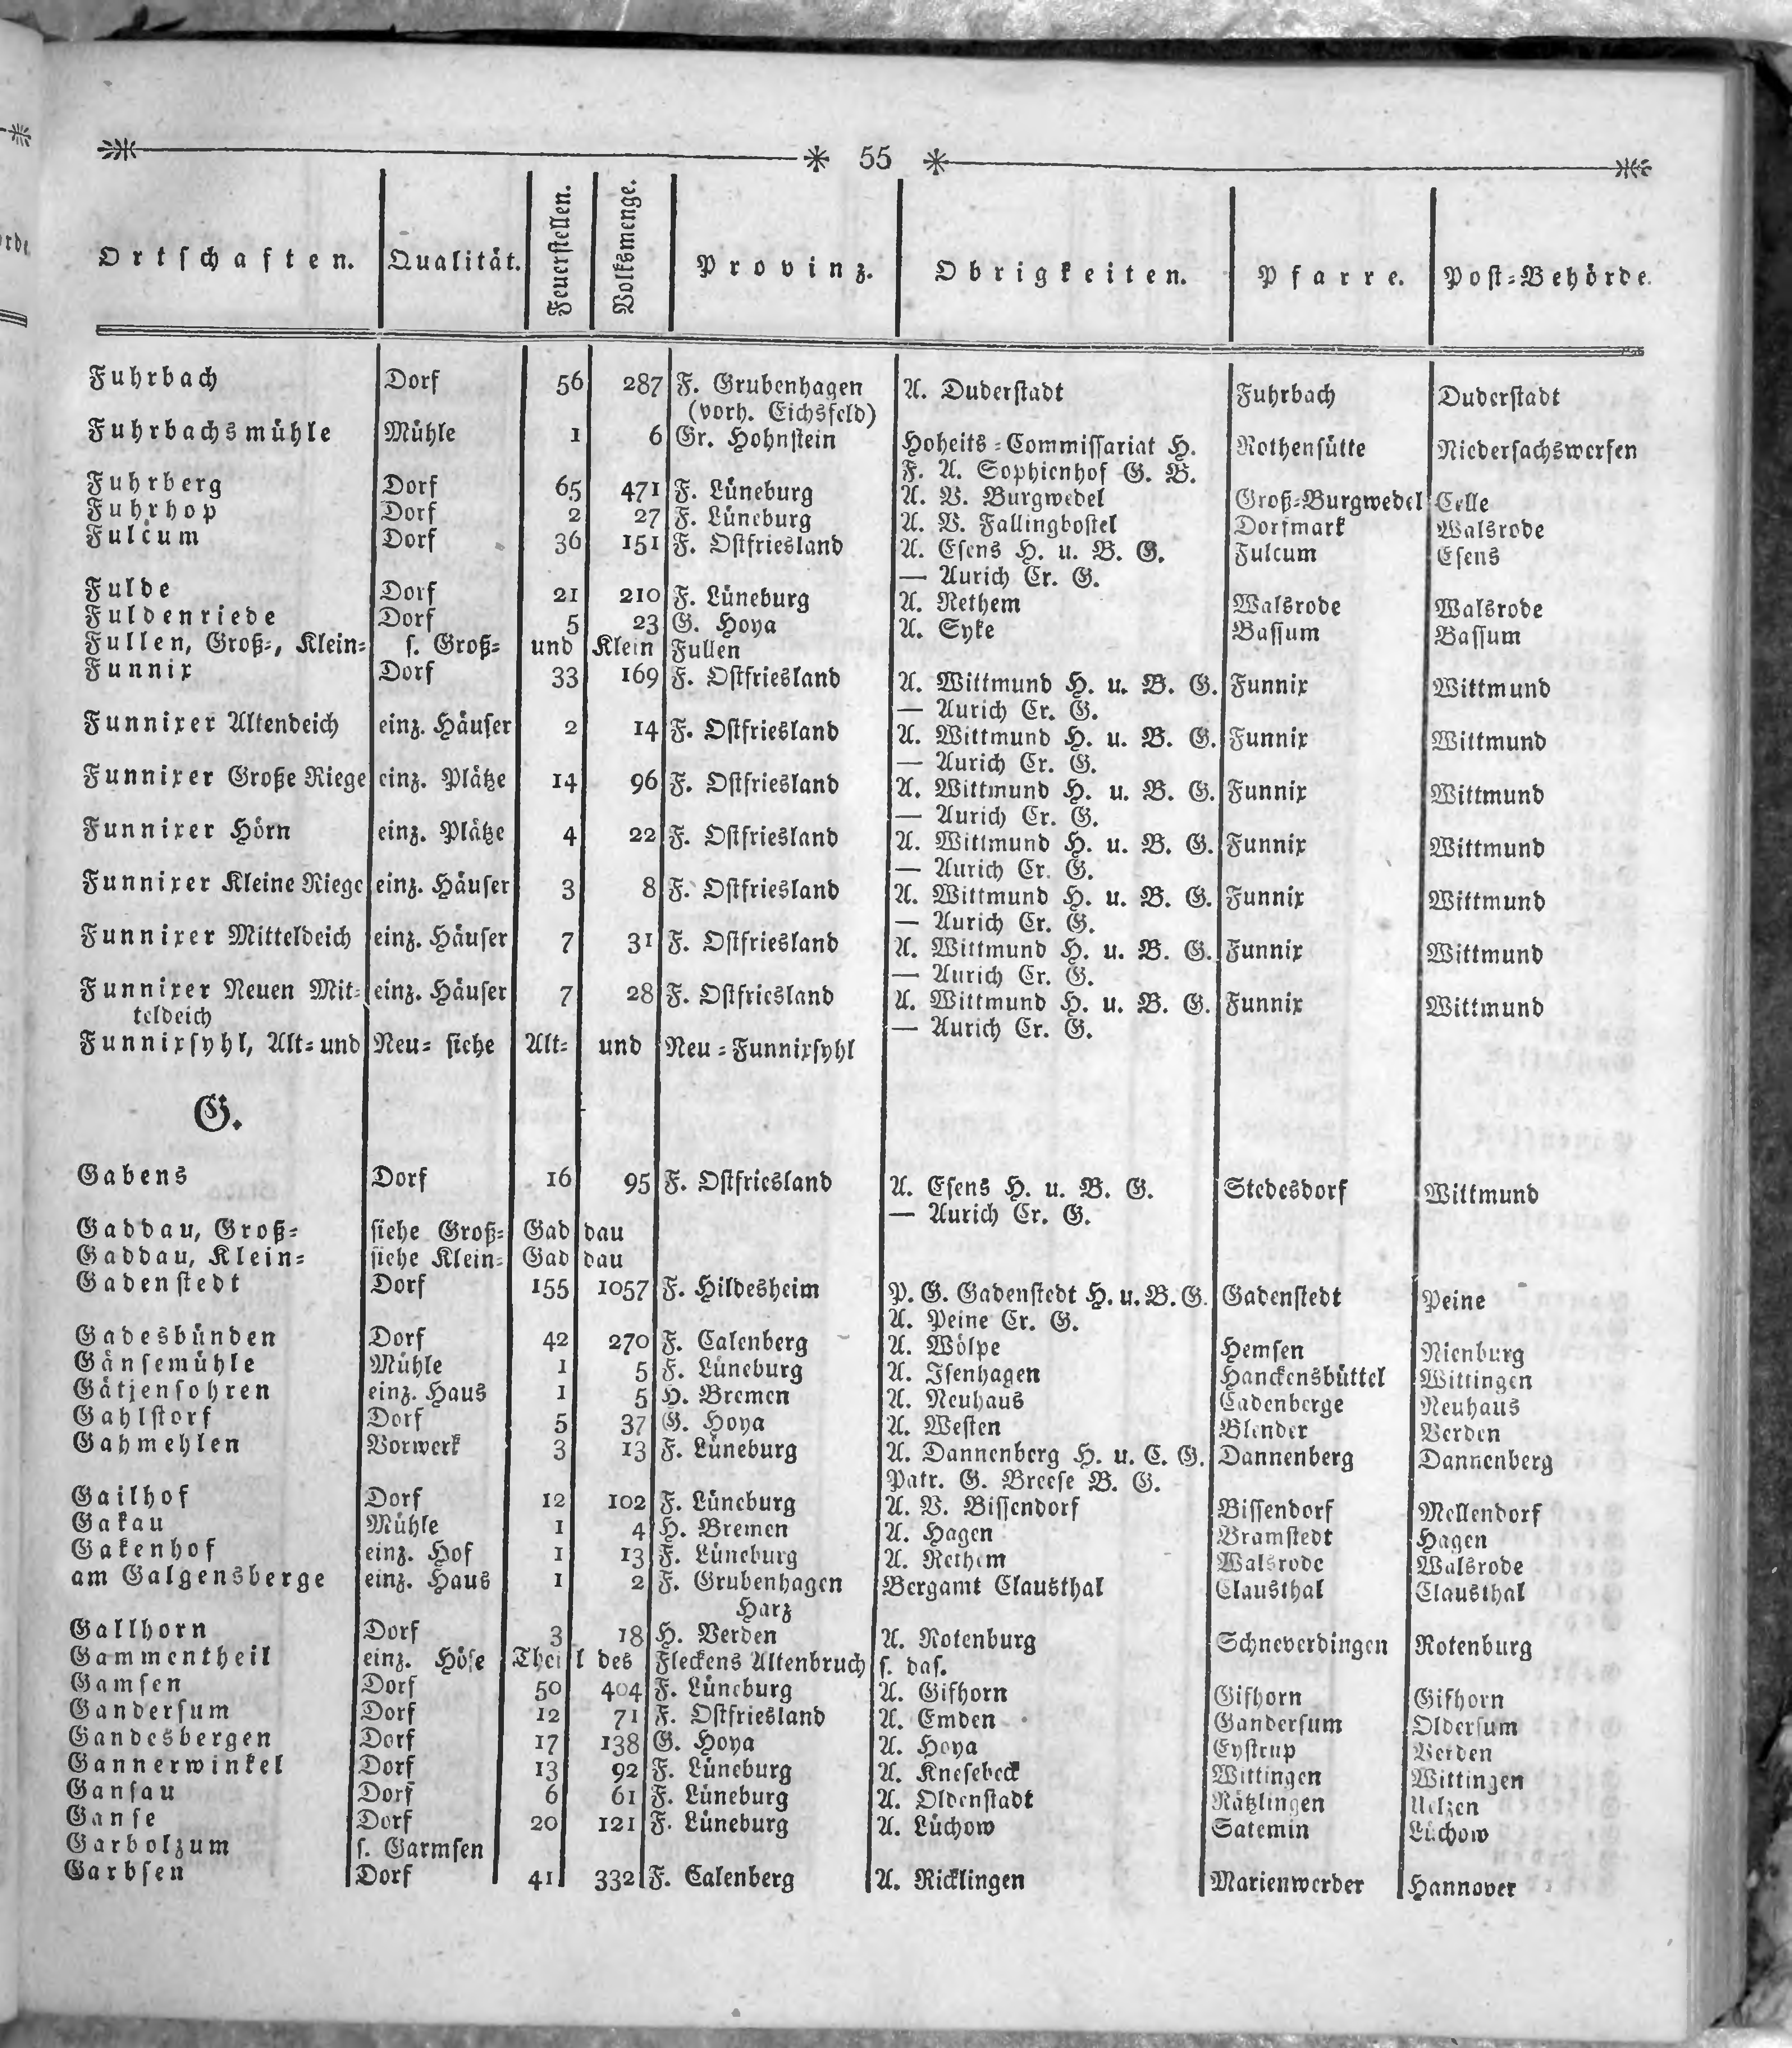 55
Ortschaften. Qualität. Feuerstellen. Volksmenge. Provinz. Obrigkeiten. Pfarre. Post-Behörde.
Fuhrbach Dorf 56 287 F. Grubenhagen A. Duderstadt Fuhrbach Duderstadt
(vorh. Eichsfeld)
Fuhrbachsmühle Mühle 1 6 Gr. Hohnstein Hoheits-Commissariat H. Rothensütte Niedersachswerfen
F. A. Sophienhof G. B.
Fuhrberg Dorf 65 471 F. Lüneburg A. V. Burgwedel Groß-Burgwedel Celle
Fuhrhop Dorf 2 27 F. Lüneburg A. V. Fallingbostel Dorfmark Walsrode
Fulcum Dorf 36 151 F. Ostfriesland A. Esens H. u. B. G. Fulcum Esens
— Aurich Cr. G.
Fulde Dorf 21 210 F. Lüneburg A. Rethem Walsrode Walsrode
Fuldenriede Dorf 5 23 G. Hoya A. Syke Bassum Bassum
Fullen, Groß-, Klein- s. Groß- und Klein Fullen
Funnix Dorf 33 169 F. Ostfriesland A. Wittmund H. u. B. G. Funnix Wittmund
— Aurich Cr. G.
Funnixer Altendeich einz. Häuser 2 14 F. Ostfriesland A. Wittmund H. u. B. G. Funnix Wittmund
— Aurich Cr. G.
Funnixer Große Riege einz. Plätze 14 96 F. Ostfriesland A. Wittmund H. u. B. G. Funnix Wittmund
— Aurich Cr. G.
Funnixer Hörn einz. Plätze 4 22 F. Ostfriesland A. Wittmund H. u. B. G. Funnix Wittmund
— Aurich Cr. G.
Funnixer Kleine Riege einz. Häuser 3 8 F. Ostfriesland A. Wittmund H. u. B. G. Funnix Wittmund
— Aurich Cr. G.
Funnixer Mitteldeich einz. Häuser 7 31 F. Ostfriesland A. Wittmund H. u. B. G. Funnix Wittmund
— Aurich Cr. G.
Funnixer Neuen Mit- einz. Häuser 7 28 F. Ostfriesland A. Wittmund H. u. B. G. Funnix Wittmund
teldeich — Aurich Cr. G.
Funnixsyhl, Alt- und Neu- siehe Alt- und Neu-Funnixsyhl
G.
Gabens Dorf 16 95 F. Ostfriesland A. Esens H. u. B. G. Stedesdorf Wittmund
— Aurich Cr. G.
Gaddau, Groß- siehe Groß- Gaddau
Gaddau, Klein- siehe Klein- Gaddau
Gadenstedt Dorf 155 1057 F. Hildesheim P. G. Gadenstedt H. u. B. G. Gadenstedt Peine
A. Peine Cr. G.
Gadesbünden Dorf 42 270 F. Calenberg A. Wölpe Hemsen Nienburg
Gänsemühle Mühle 1 5 F. Lüneburg A. Isenhagen Hanckensbüttel Wittingen
Gätjensohren einz. Haus 1 5 H. Bremen A. Neuhaus Cadenberge Neuhaus
Gahlstorf Dorf 5 37 G. Hoya A. Westen Blender Verden
Gahmehlen Vorwerk 3 13 F. Lüneburg A. Dannenberg H. u. C. G. Dannenberg Dannenberg
Patr. G. Breese B. G.
Gailhof Dorf 12 102 F. Lüneburg A. V. Bissendorf Bissendorf Mellendorf
Gakau Mühle 1 4 H. Bremen A. Hagen Bramstedt Hagen
Gakenhof einz. Hof 1 13 F. Lüneburg A. Rethem Walsrode Walsrode
am Galgensberge einz. Haus 1 2 F. Grubenhagen Bergamt Clausthal Clausthal Clausthal
Harz
Gallhorn Dorf 3 18 H. Verden A. Rotenburg Schneverdingen Rotenburg
Gammentheil einz. Höfe Theil des Fleckens Altenbruch s. das.
Gamsen Dorf 50 404 F. Lüneburg A. Gifhorn Gifhorn Gifhorn
Gandersum Dorf 12 71 F. Ostfriesland A. Emden Gandersum Oldersum
Gandesbergen Dorf 17 138 G. Hoya A. Hoya Eystrup Verden
Gannerwinkel Dorf 13 92 F. Lüneburg A. Knesebeck Wittingen Wittingen
Gansau Dorf 6 61 F. Lüneburg A. Oldenstadt Rätzlingen Uelzen
Ganse Dorf 20 121 F. Lüneburg A. Lüchow Satemin Lüchow
Garbolzum s. Garmsen
Garbsen Dorf 41 332 F. Calenberg A. Ricklingen Marienwerder Hannover